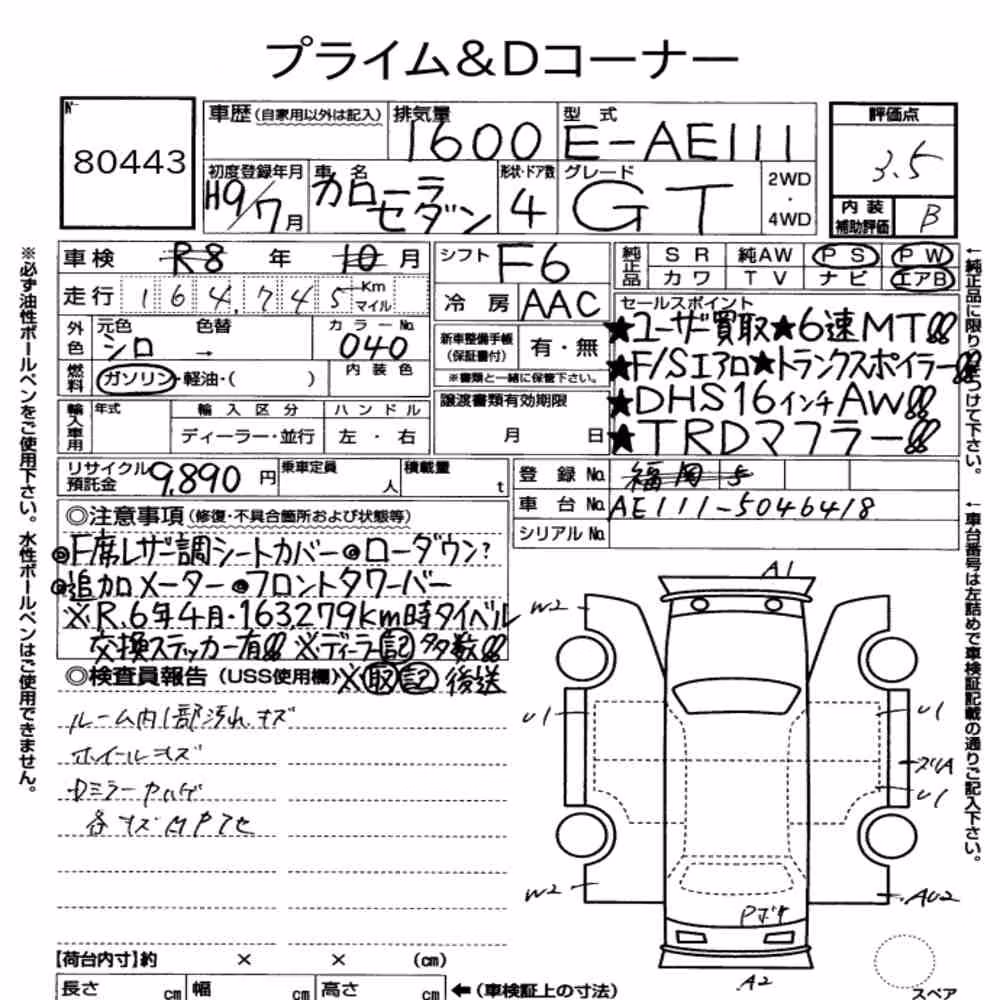 プライム&Dコーナー
No 80443
車歴(自家用以外は記入)
排気量 1600
型式 E-AE111
評価点 3.5
初度登録年月 H9/7月
車名 カローラ セダン
形状・ドア数 4
グレード GT
2WD・4WD
内装補助評価 B
車検 R8年 10月
シフト F6
純正品 SR 純AW PS PW
カワ TV ナビ エアB
走行 164,745 Km マイル
冷房 AAC
セールスポイント
★ユーザー買取★6速MT!!
★F/Sエアロ★トランクスポイラー!!
★DHS16インチAW!!
★TRDマフラー!!
外色 元色 シロ → 色替
カラーNo. 040
新車整備手帳(保証書付) 有・無
※書類と一緒に保管下さい。
燃料 ガソリン・軽油・( )
内装色
譲渡書類有効期限
月 日
輸入車用 年式 輸入区分 ハンドル
ディーラー・並行 左・右
リサイクル預託金 9,890円
乗車定員 人
積載量 t
登録No. 福岡 5
車台No. AE111-5046418
シリアルNo.
◎注意事項(修復・不具合箇所および状態等)
◎F席レザー調シートカバー◎ローダウン?
◎追加メーター◎フロントタワーバー
※R.6年4月・163279km時タイベル
交換ステッカー有!! ※ディーラー記多数!!
◎検査員報告(USS使用欄)※取記後送
ルーム内1部汚れ、キズ
ホイールキズ
Dミラーカハゲ
各キズ凹P7セ
A1
W2
U1
U1
U1
W2
AU2
Pボチ
A2
スペア
【荷台内寸】約 × × (cm)
長さ cm 幅 cm 高さ cm ←(車検証上の寸法)
※必ず油性ボールペンをご使用下さい。水性ボールペンはご使用できません。
←車台番号は左詰めで車検証記載の通りご記入下さい。